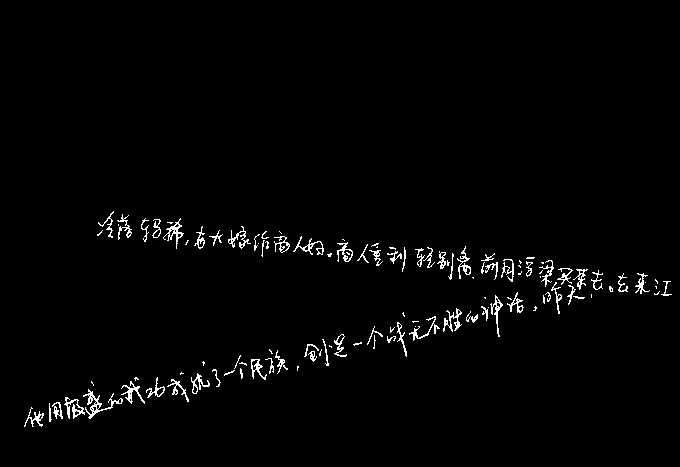 冷落鞍马稀,老大嫁作商人妇。商人重利轻别离,前月浮梁买茶去。去来江
他用极盛的武功成就了一个民族,创造一个战无不胜的神话。昨天,